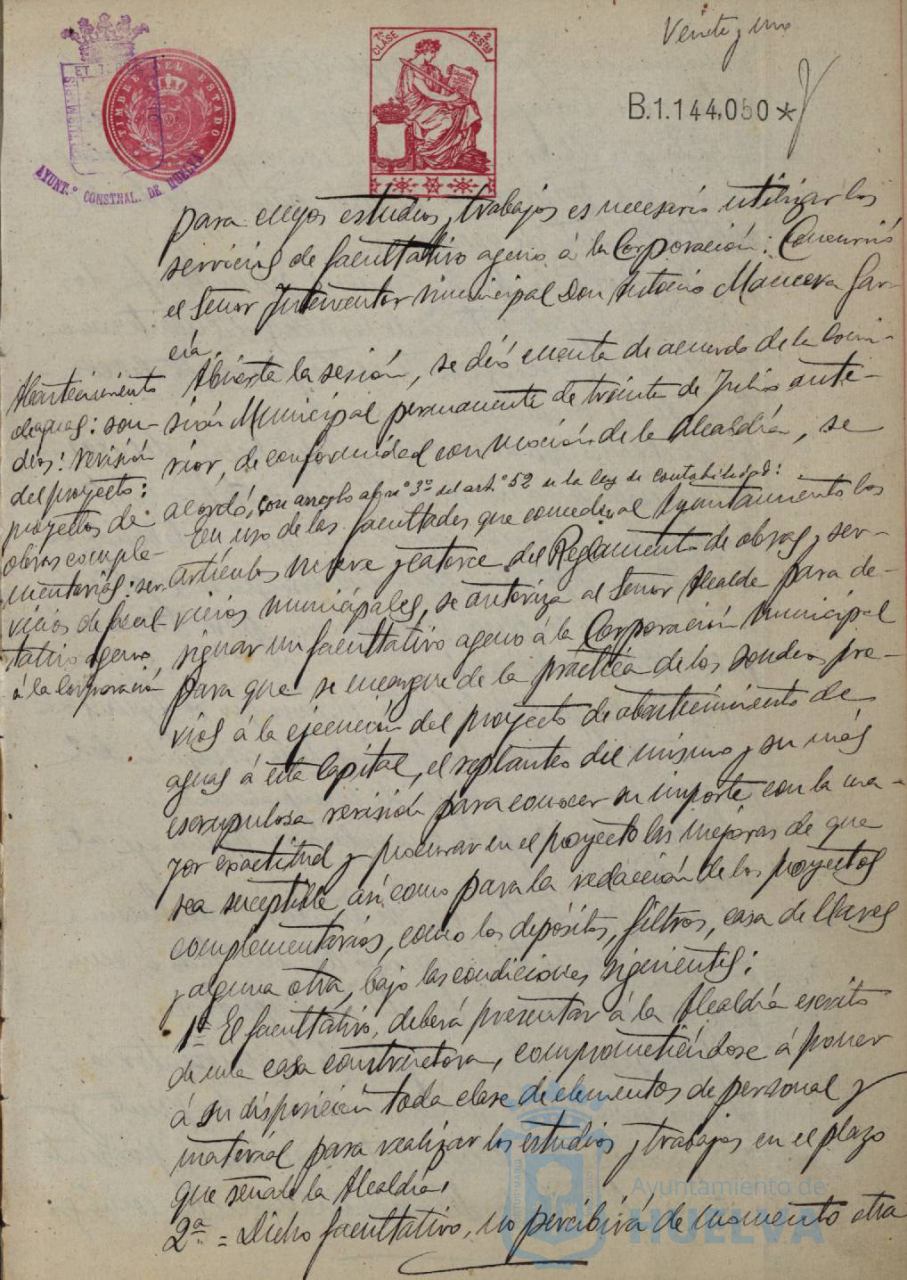 Veinte y uno
7ª CLASE 2 PESTAS
TIMBRE DEL ESTADO
B.1.144,050*
AYUNT.º CONSTNAL. DE HUELVA
para cuyos estudios y trabajos es necesario utilizar los
servicios de facultativo ageno á la Corporación: Concurrió
el Señor Interventor municipal Don Antonio Mancera Gar-
cía.
Abastecimiento
de aguas: son-
deos: revisión
del proyecto:
proyectos de
obras comple-
mentarias: ser-
vicios de facul-
tativo ageno
á la Corporación
Abierta la sesión, se dió cuenta de acuerdo de la Comi-
sión Municipal permanente de treinta de Julio ante-
rior, de conformidad con moción de la Alcaldía, se
acordó, con arreglo al nº 3º del artº 52 de la ley de contabilidad:
En uso de las facultades que concede al Ayuntamiento los
artículos nueve y catorce del Reglamento de obras y ser-
vicios municipales, se autoriza al Señor Alcalde para de-
signar un facultativo ageno á la Corporación Municipal
para que se encargue de la práctica de los sondeos pre-
vios á la ejecución del proyecto de abastecimiento de
aguas á esta Capital, el replanteo del mismo y su más
escrupulosa revisión para conocer su importe con la ma-
yor exactitud y procurar en el proyecto las mejoras de que
sea suceptible así como para la redacción de los proyectos
complementarios, como los depósitos, filtros, casa de llaves
y alguna otra, bajo las condiciones siguientes:
1ª El facultativo, deberá presentar á la Alcaldía escrito
de una casa constructora, comprometiéndose á poner
á su disposición toda clase de elementos de personal y
material para realizar los estudios y trabajos en el plazo
que señale la Alcaldía.
2ª = Dicho facultativo, no percibirá de momento otra
Ayuntamiento de
HUELVA